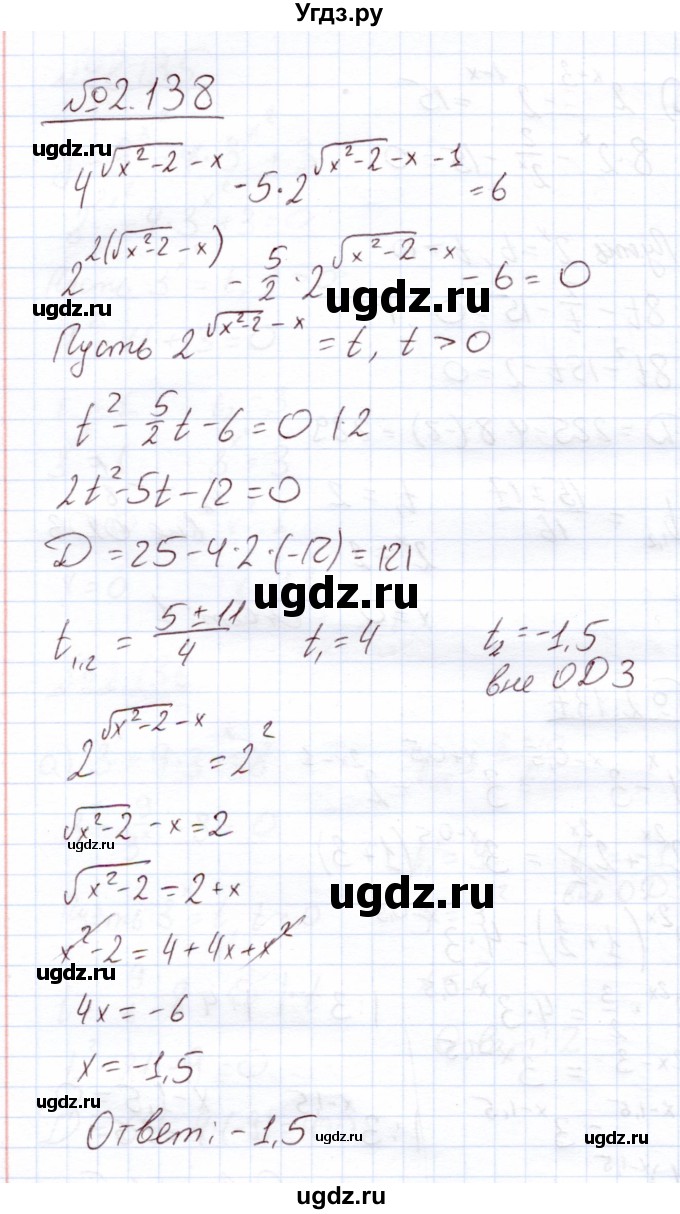 Угдз.ру
№2.138
ugdz.ru
4^(√(x²-2) - x) - 5·2^(√(x²-2) - x - 1) = 6
2^(2(√(x²-2) - x)) - 5/2 · 2^(√(x²-2) - x) - 6 = 0
ugdz.ru
ugdz.ru
Пусть 2^(√(x²-2) - x) = t, t > 0
t² - 5/2 t - 6 = 0 |·2
2t² - 5t - 12 = 0
D = 25 - 4·2·(-12) = 121
ugdz.ru
t₁,₂ = (5 ± 11)/4   t₁ = 4   t₂ = -1,5
вне ОДЗ
2^(√(x²-2) - x) = 2²
√(x²-2) - x = 2
ugdz.ru
√(x²-2) = 2 + x
ugdz.ru
x² - 2 = 4 + 4x + x²
ugdz.ru
4x = -6
x = -1,5
ugdz.ru
Ответ: -1,5
ugdz.ru
ugdz.ru
ugdz.ru